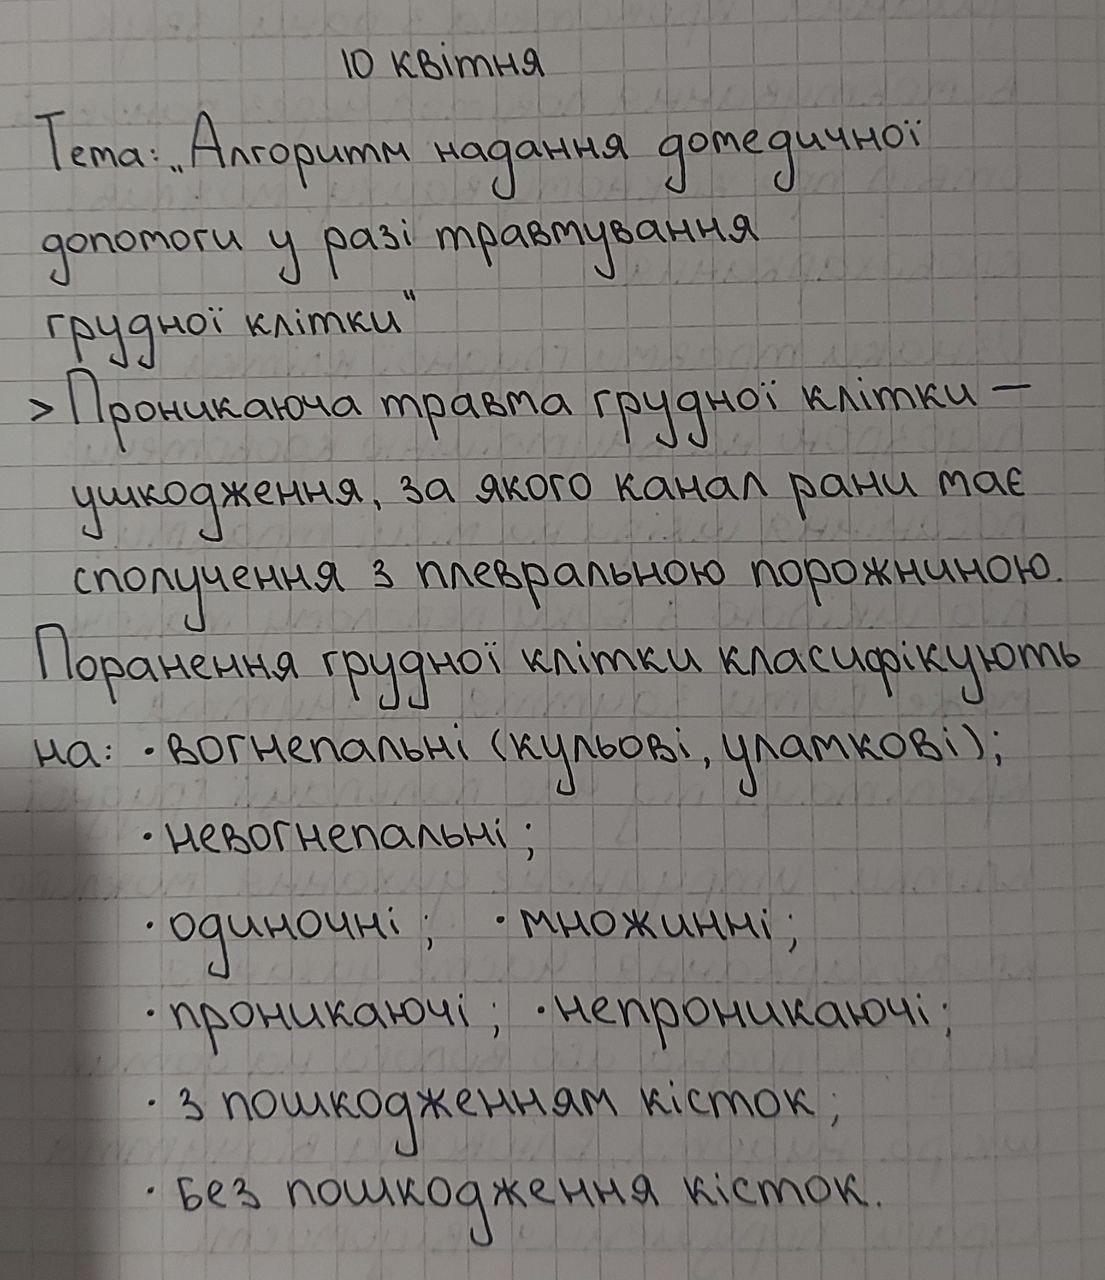 10 квітня
Тема: „Алгоритм надання домедичної
допомоги у разі травмування
грудної клітки"
> Проникаюча травма грудної клітки –
ушкодження, за якого канал рани має
сполучення з плевральною порожниною.
Поранення грудної клітки класифікують
на: · вогнепальні (кульові, уламкові);
· невогнепальні;
· одиночні; · множинні;
· проникаючі; · непроникаючі;
· з пошкодженням кісток;
· без пошкодження кісток.